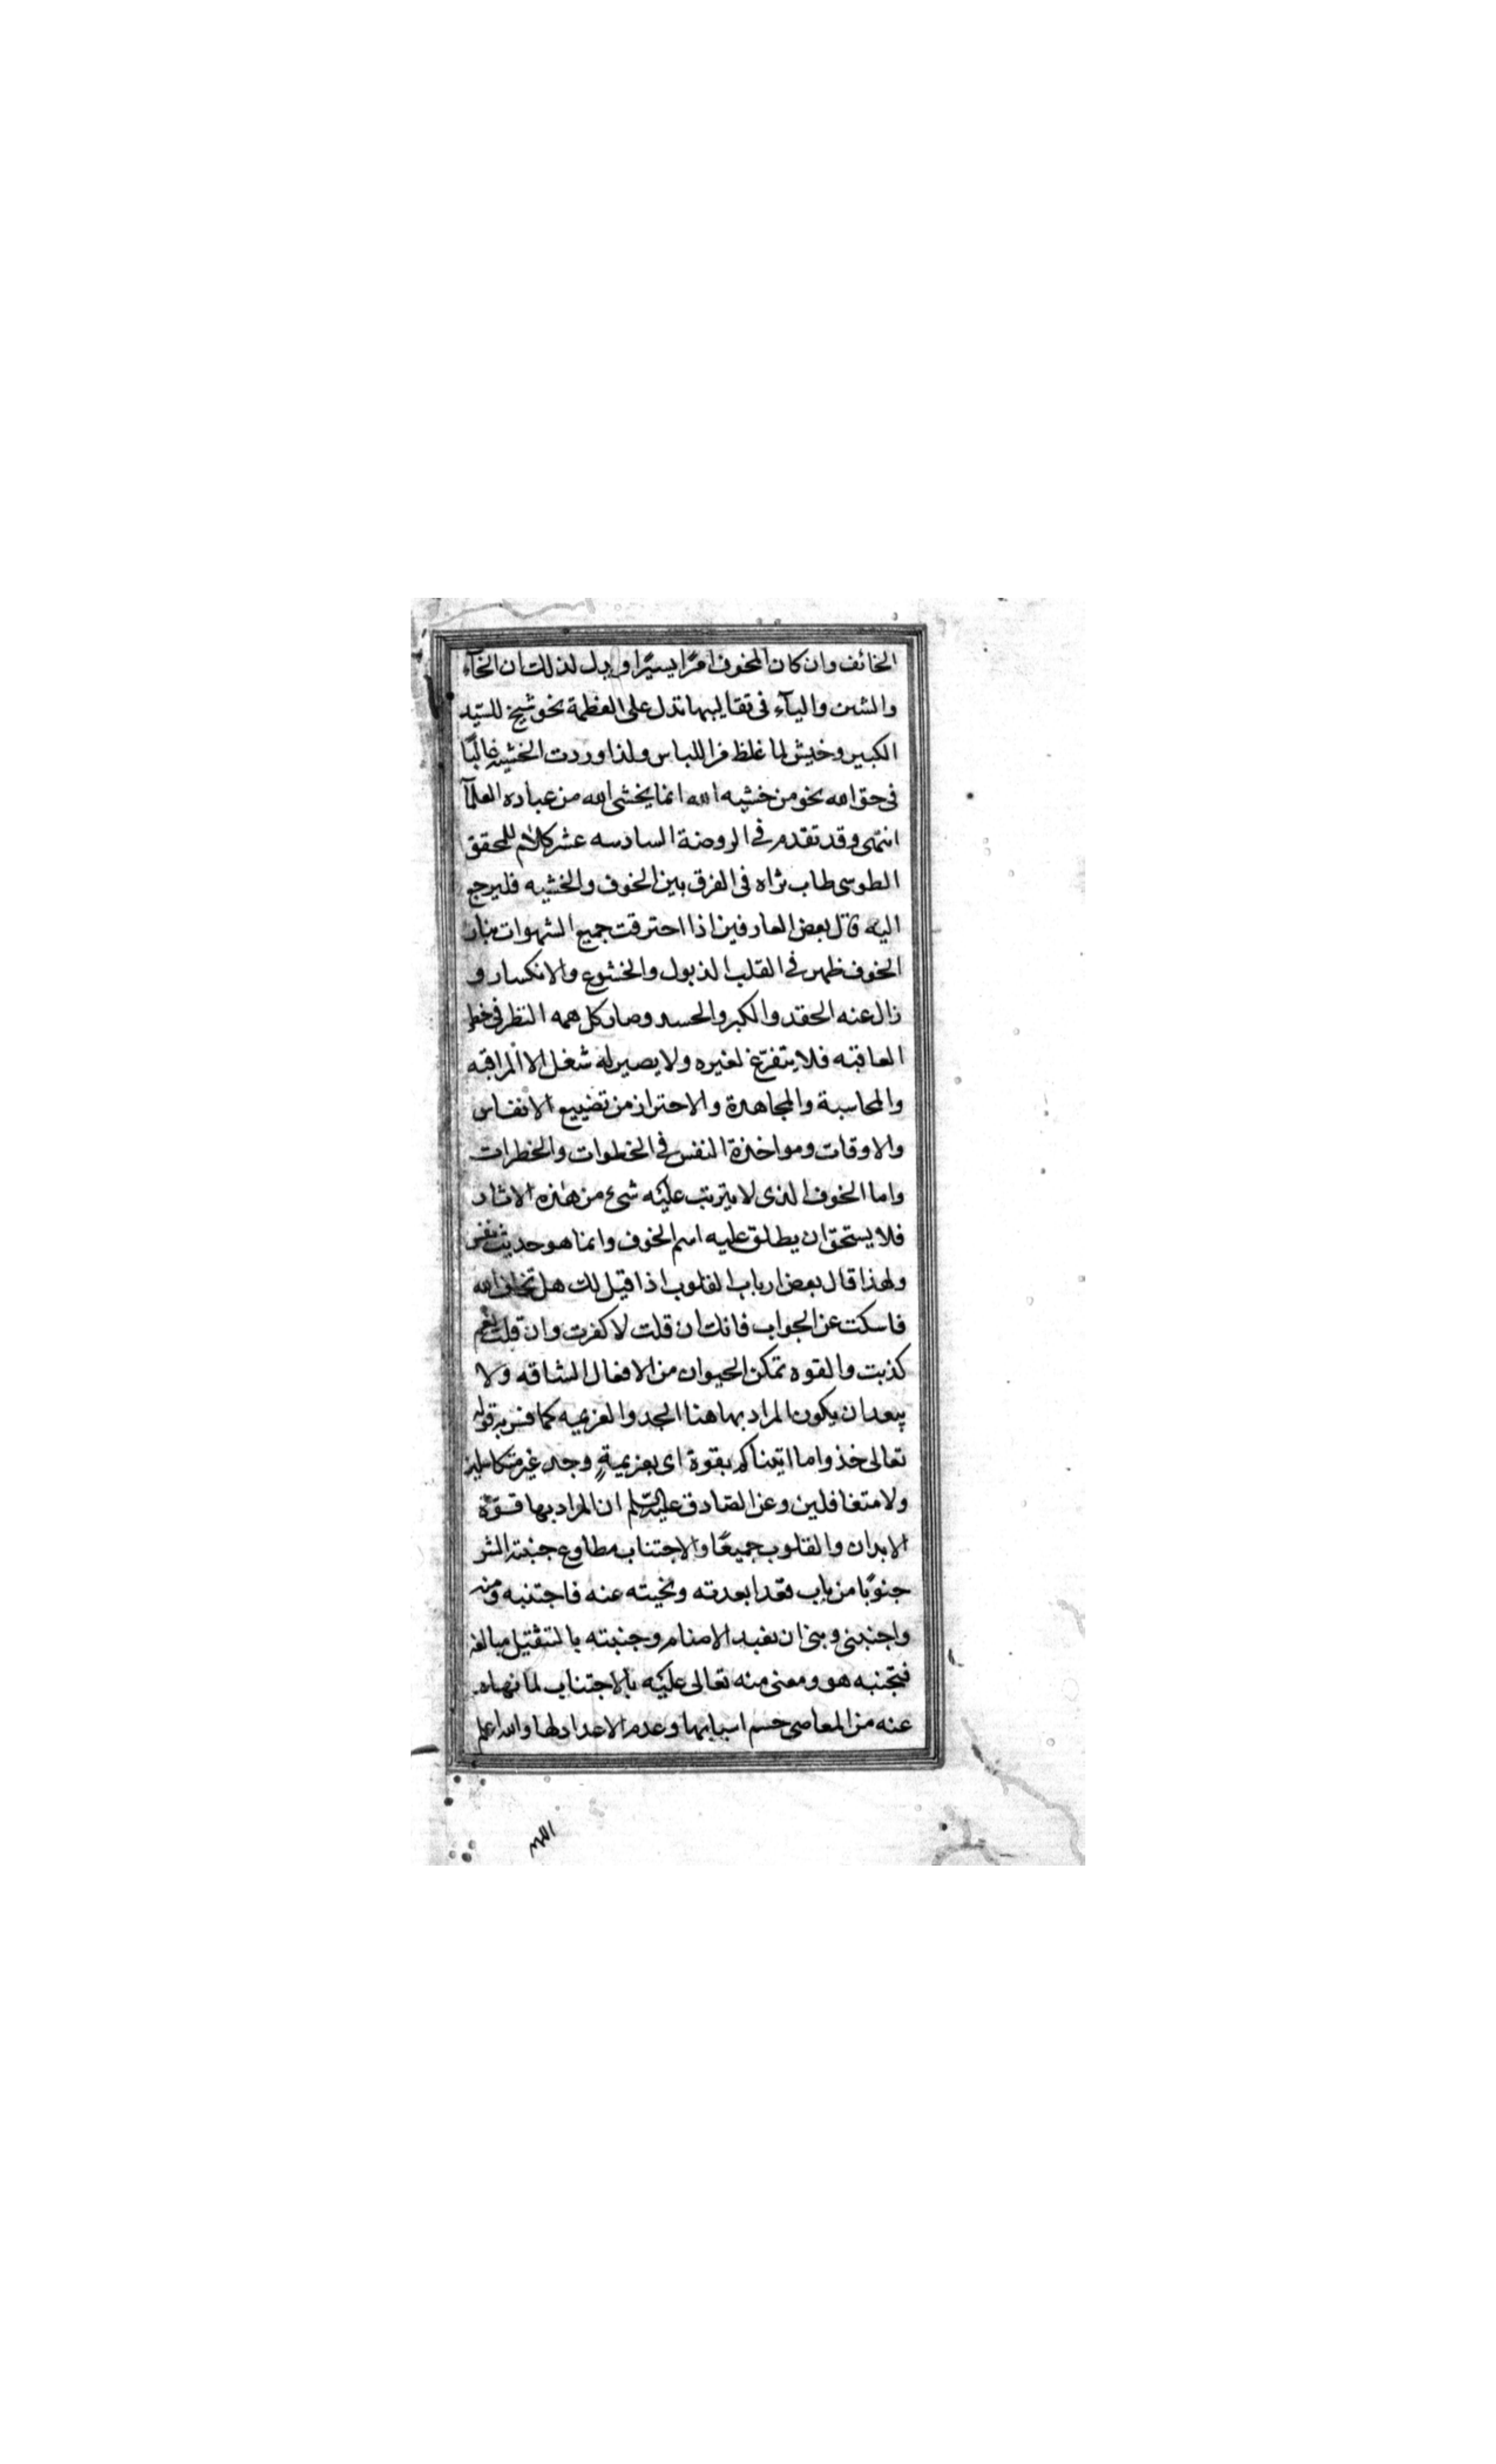 الخائف وان كان المخوف امرًا يسيرًا ويدل لذلك ان الخآء
والشين واليآء فى تقاليبها تدل على العظمة نحو شيخ للسّيد
الكبير وخيش لما غلظ من اللباس ولذا وردت الخشيه غالبًا
فى حق الله نحو من خشيه الله انما يخشى الله من عباده العلمآ
انتهى وقد تقدم فى الروضة السادسه عشر كلام للمحقق
الطوسى طاب ثراه فى الفرق بين الخوف والخشيه فليرجع
اليه قال بعض العارفين اذا احترقت جميع الشهوات بنار
الخوف ظهر فى القلب الذبول والخشوع والانكسار و
زال عنه الحقد والكبر والحسد وصار كل همه النظر فى خطر
العاقبه فلا يتفرّغ لغيره ولا يصير له شغل الا المراقبه
والمحاسبة والمجاهدة والاحتراز من تضييع الانفاس
والاوقات ومواخذة النفس فى الخطوات والخطرات
واما الخوف الذى لا يترتب عليه شئ من هذه الاثار
فلا يستحق ان يطلق عليه اسم الخوف وانما هو حديث نفس
ولهذا قال بعض ارباب القلوب اذا قيل لك هل تخاف الله
فاسكت عن الجواب فانك ان قلت لا كفرت وان قلت نعم
كذبت والقوه تمكن الحيوان من الافعال الشاقه ولا
يبعد ان يكون المراد بها هنا الجد والعزيمه كما فسر به قوله
تعالى خذوا ما اتيناكم بقوة اى بعزيمةٍ وجد غير متكاسلين
ولا متغافلين وعن الصّادق عليه السّلم ان المراد بها قوّة
الابدان والقلوب جميعًا والاجتناب مطاوع جنبته الشر
جنوبًا من باب قعد ابعدته ونحيته عنه فاجتنبه ومنه
واجنبنى وبنى ان نعبد الاصنام وجنبته بالتثقيل مبالغه
فتجنبه هو ومعنى منه تعالى عليه بالاجتناب لما نهاه
عنه من المعاصى حسم اسبابها وعدم الاعداد لها والله اعلم
اللهم